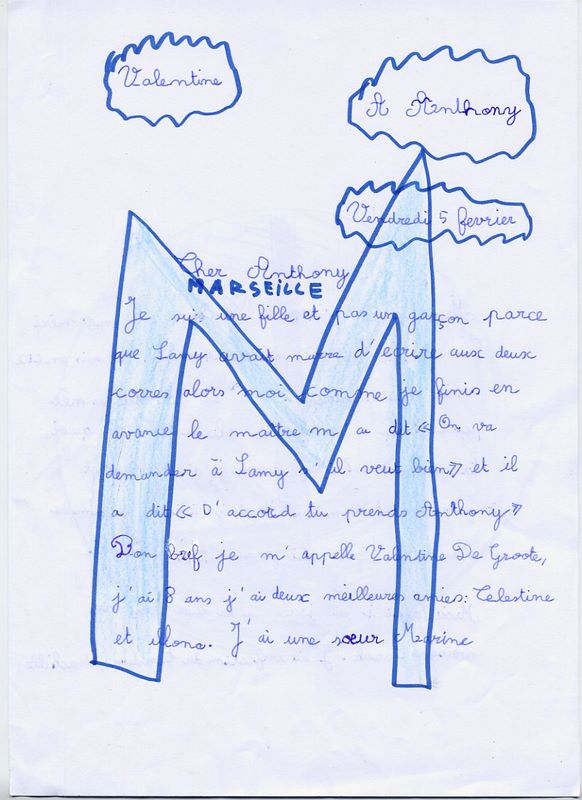 Valentine
A Anthony
Vendredi 5 fevrier
Cher Anthony
MARSEILLE
Je suis une fille et pas un garçon parce
que Lamy avait marre d'ecrire aux deux
corres alors moi comme je finis en
avance le maitre m'a dit « On va
demander à Lamy s'il veut bien» et il
a dit « D'accord tu prends Anthony»
Bon bref je m'appelle Valentine De Groote,
j'ai 8 ans j'ai deux meilleures amies: Celestine
et illona. J'ai une sœur Marine